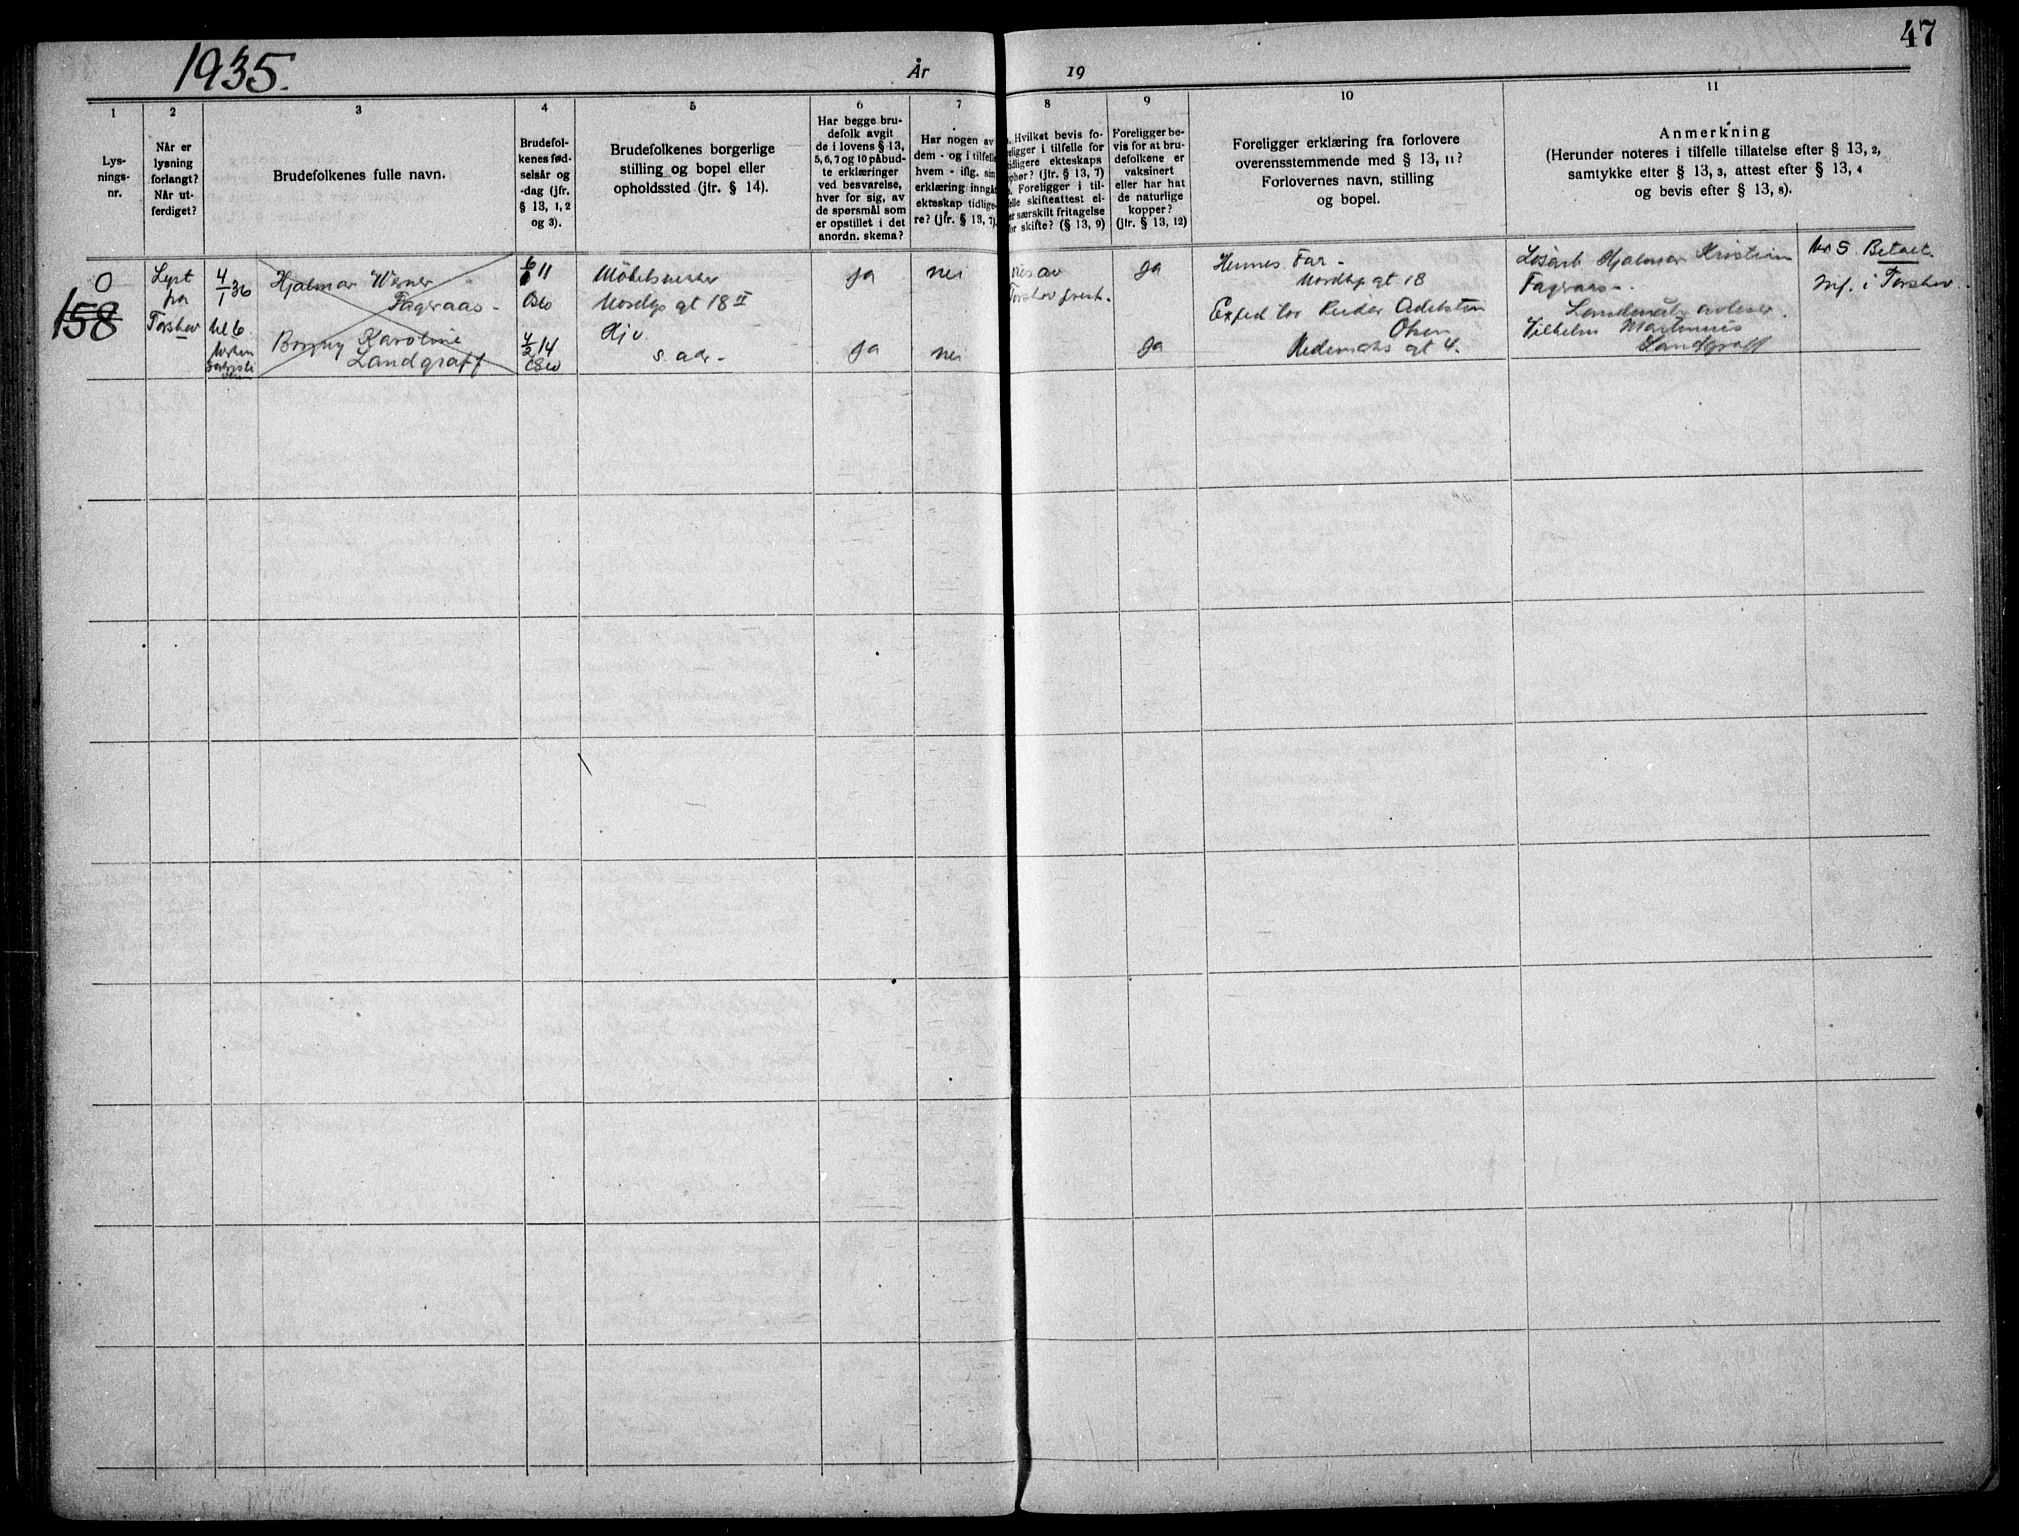 1935.
År
19
47
1
2
3
4
5
6
7
8
9
10
11
Lys-
nings-
nr.
Når er
lysning
forlangt?
Når ut-
ferdiget?
Brudefolkenes fulle navn.
Brudefol-
kenes fød-
selsår og
-dag (jfr.
§ 13, 1, 2
og 3).
Brudefolkenes borgerlige
stilling og bopel eller
opholdssted (jfr. § 14).
Har begge bru-
defolk avgit
de i lovens § 13,
5, 6, 7 og 10 påbud-
te erklæringer
ved besvarelse,
hver for sig, av
de spørsmål som
er opstillet i det
anordn. skema?
Har nogen av
dem - og i tilfelle
hvem - iflg. sin
erklæring inngåt
ekteskap tidlige-
re? (jfr. § 13, 7).
Hvilket bevis fo-
religger i tilfelle for
tidligere ekteskaps
ophør? (jfr. § 13, 7)
Foreligger i til-
felle skifteattest el-
er særskilt fritagelse
for skifte? (§ 13, 9)
Foreligger be-
vis for at bru-
defolkene er
vaksinert
eller har hat
de naturlige
kopper?
(jfr. § 13, 12)
Foreligger erklæring fra forlovere
overensstemmende med § 13, 11?
Forlovernes navn, stilling
og bopel.
Anmerkning
(Herunder noteres i tilfelle tillatelse efter § 13, 2,
samtykke efter § 13, 3, attest efter § 13, 4
og bevis efter § 13, 8).
0
158
Lyst
fra
Torshov
4/1 36
Hjalmar Werner
Fagraas -
Borgny Karoline
Landgraff
6/6 11
Oslo
4/2 14
Oslo
Möbelsnekker
gt 18 II
Hjv.
s. adr -
Ja
nei
Ja
nei
av
Torshov prest.
Ja
Ja
Hennes Far -
gt 18
Reidar
Olsen
gt 4.
Løsarb Hjalmar Kristian
Fagraas -
Vilhelm Martinius
Landgraff
Nr 5 Betalt
i Torshov.